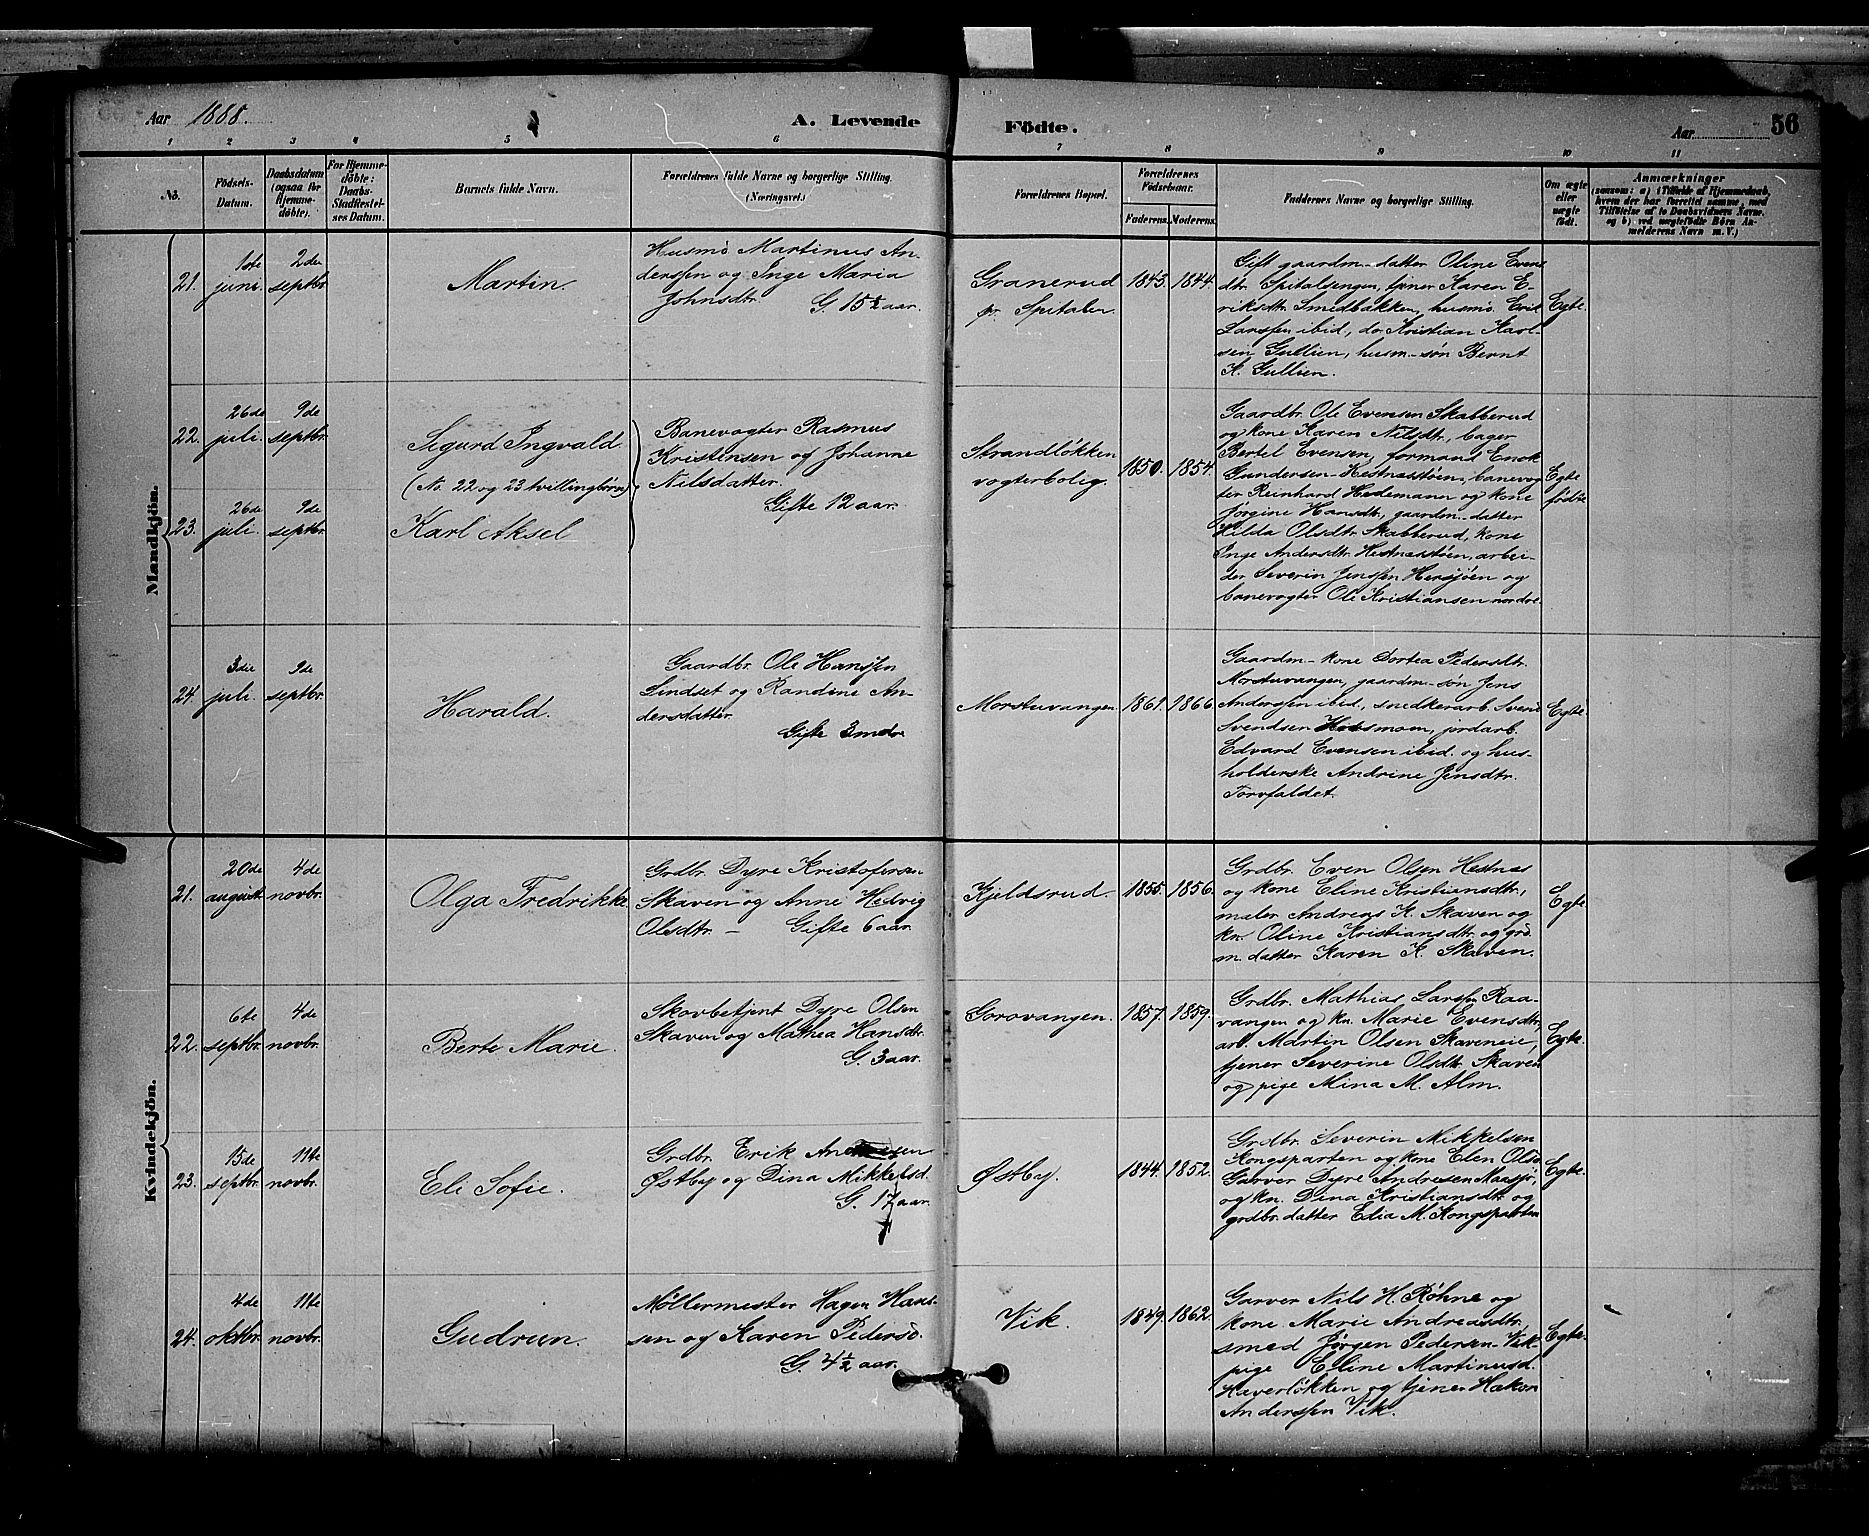 Aar 1888.
A. Levende Födte.
Aar 56
1 2 3 4 5 6 7 8 9 10 11
No.
Födsels-Datum.
Daabsdatum (ogsaa for Hjemme-döbte).
For Hjemme-döbte: Daabs-Stadfæstel-ses Datum.
Barnets fulde Navn.
Forældrenes fulde Navne og borgerlige Stilling. (Næringsvei.)
Forældrenes Bopæl.
Forældrenes Födselsaar.
Faderens. Moderens.
Faddernes Navne og borgerlige Stilling.
Om ægte eller uægte födt.
Anmærkninger
(saasom: a) i Tilfælde af Hjemmedaab,
hvem der har forrettet samme, med
Tilföielse af to Daabsvidners Navne.
og b) ved uægtefödte Börn An-
melderens Navn m. V.)
Mandkjön.
21.
1ste
juni.
2den
septbr.
Martin.
Husmd Martinus An-
derssen og Inge Maria
Johnsdtr.
G. 15½ aar.
Granerud
pr. Spitalen.
1843. 1844.
Gift gaardm-datter Oline Evens
dtr. Spitalsengen, tjener Karen E-
riksdtr. Smedbakken, husmd. Erik
Larssen ibid, do Kristian Karl-
sen Gullien, husm-søn Bernt
K. Gullien.
Egte.
22.
26de
juli.
9de
septbr.
Sigurd Ingvald
(No. 22 og 23 tvillingbørn)
23.
26de
juli.
9de
septbr.
Karl Aksel
Banevogter Rasmus
Kristensen og Johanne
Nilsdatter.
Gifte 12 aar.
Strandløkken
vogterbolig.
1850. 1854.
Gaardbr. Ole Evensen Skabberud
og kone Karen Nilsdtr., bager
Bertel Evensen, formand Enok
Gundersen Hestnæstøen, banevog-
ter Reinhard Hedemann og kone
Jørgine Hansdtr., gaardm-datter
Hilda Olsdtr. Skabberud, kone
Inge Andersdtr. Hestnæstøen, arbei-
der Severin Jenssen Hersjøen og
banevogter Ole Kristiansen nordre.
Egte
fødte
24.
3die
juli.
9de
septbr.
Harald.
Gaardbr. Ole Hanssen
Lindset og Randine An-
dersdatter.
Gifte 3 mdr.
Morstuvangen.
1861. 1866.
Gaardm-kone Dortea Pedersdtr.
Morstuvangen, gaardm-søn Jens
Anderssen ibid, snedkerarb. Svend
Svendsen Hosmoen, jordarb.
Edvard Evensen ibid. og hus-
holderske Andrine Jensdtr.
Torvfaldet.
Egte.
Kvindekjön.
21.
20de
august.
4de
novbr.
Olga Fredrikke
Grdbr. Dyre Kristofersen
Skaven og Anne Helvig
Olsdtr. – Gifte 6 aar.
Kjeldsrud.
1855. 1856.
Grdbr. Even Olsen Hestnæs
og kone Eline Kristiansdtr.,
maler Andreas K. Skaven og
kn. Oline Kristiansdtr. og grd-
m. datter Karen K. Skaven.
Egte.
22.
6te
septbr.
4de
novbr.
Berte Marie.
Skovbetjent Dyre Olsen
Skaven og Mathea Hansdtr.
G. 3 aar.
Gorovangen.
1857. 1859.
Grdbr. Mathias Larssen Raa-
vangen og kn. Marie Evensdtr,
arb. Martin Olsen Skaveneie,
tjener Severine Olsdtr. Skaven
og pige Mina M. Alm.
Egte.
23.
15de
septbr.
11te
novbr.
Eli Sofie.
Grdbr. Erik
Østby og Dina Mikkelsd.
G. 17 aar.
Østby.
1844. 1852.
Grdbr. Severin Mikkelsen
Kongsparten og kone Elen Olsd.
Garver Dyre Andresen Maasjø,
og kn. Dina Kristiansdtr og
grdbr. datter Elia M. Kongsparten
Egte.
24.
4de
oktbr.
11te
novbr.
Gudrun.
Møllermester Hagen Hans-
sen og Karen Pedersd.
G. 4½ aar.
Vik.
1849. 1862.
Garver Nils H. Røhne og
kone Marie Andreasdtr,
smed Jørgen Pedersen Vik,
pige Eline Martinusd.
Haverløkken og tjener Hakon
Anderssen Vik.
Egte.